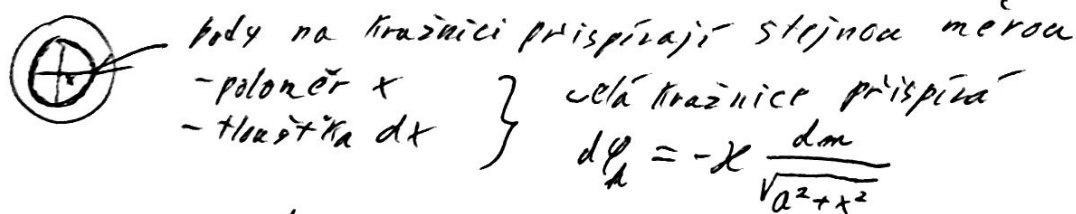 body na kražnici přispívají stejnou měrou
- poloměr x
- tloušťka dx } celá kražnice přispívá
dφ_A = -ϰ dm / √(a²+x²)